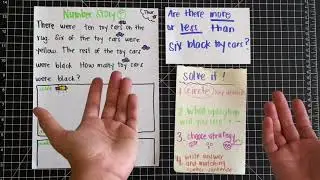 Number Story
There were ten toy cars on the
rug. Six of the toy cars were
yellow. The rest of the toy cars
were black. How many toy cars
were black?
Are there more
or less than
six black toy cars?
solve it!
1. circle
2. What operation
will you use?
3. choose strategy
4. write answer
and matching
number sentence